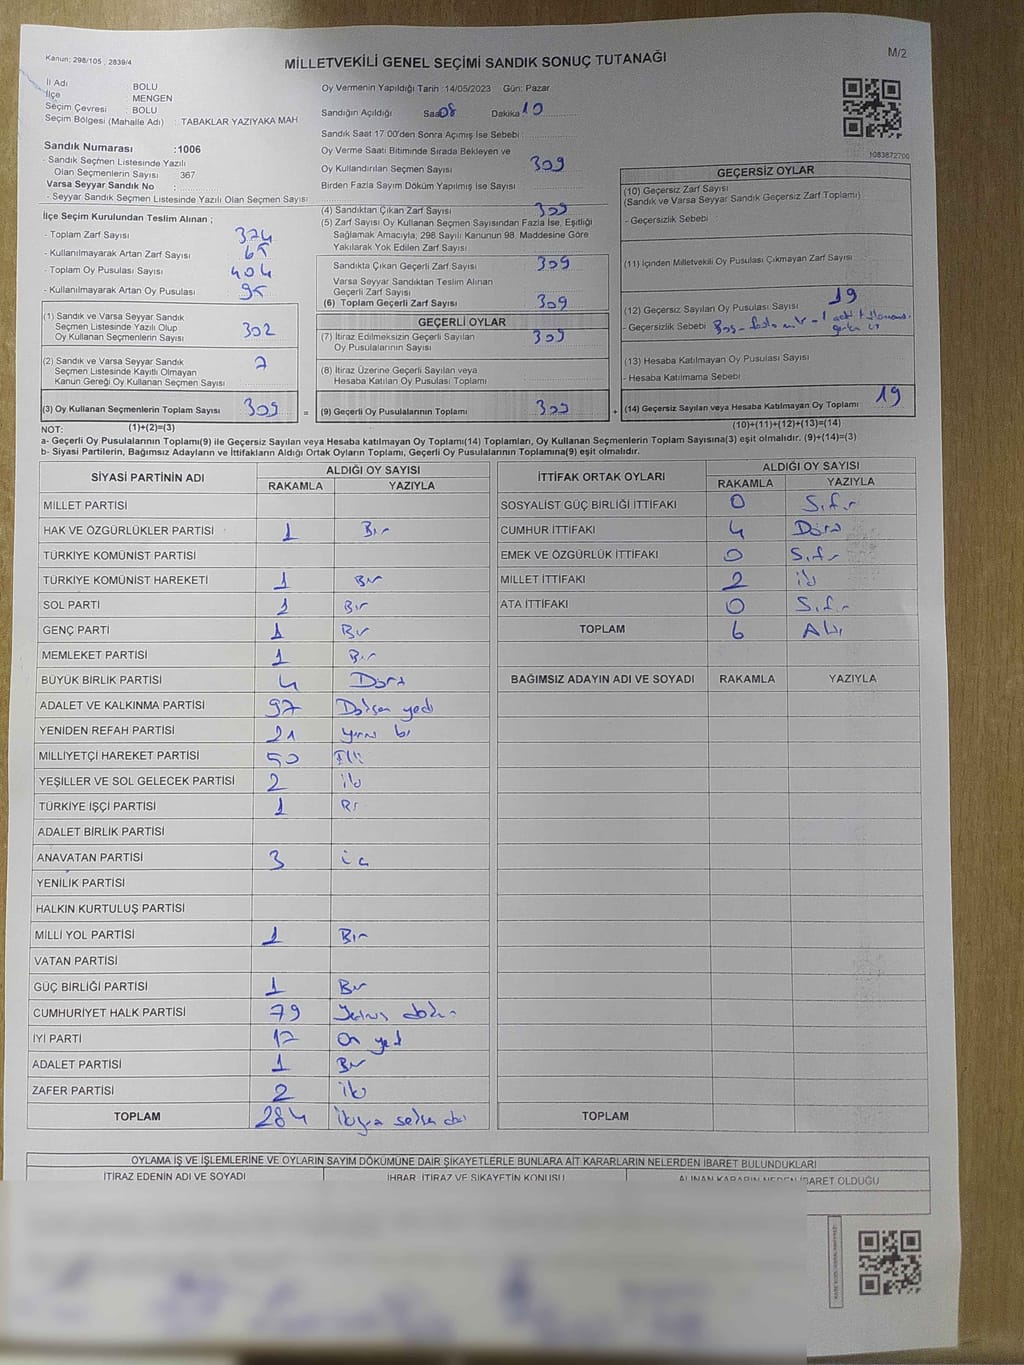 Kanun: 298/105 , 2839/4
MİLLETVEKİLİ GENEL SEÇİMİ SANDIK SONUÇ TUTANAĞI
M/2
İl Adı BOLU
İlçe MENGEN
Seçim Çevresi : BOLU
Seçim Bölgesi (Mahalle Adı) : TABAKLAR YAZIYAKA MAH
Sandık Numarası :1006
- Sandık Seçmen Listesinde Yazılı
Olan Seçmenlerin Sayısı 367
Varsa Seyyar Sandık No :
- Seyyar Sandık Seçmen Listesinde Yazılı Olan Seçmen Sayısı
Oy Vermenin Yapıldığı Tarih :14/05/2023 Gün: Pazar
Sandığın Açıldığı Saat 08 Dakika 10
Sandık Saat 17:00'den Sonra Açımış İse Sebebi :
Oy Verme Saati Bitiminde Sırada Bekleyen ve
Oy Kullandırılan Seçmen Sayısı 309
Birden Fazla Sayım Döküm Yapılmış İse Sayısı
1083872700
İlçe Seçim Kurulundan Teslim Alınan ;
- Toplam Zarf Sayısı 374
- Kullanılmayarak Artan Zarf Sayısı 65
- Toplam Oy Pusulası Sayısı 404
- Kullanılmayarak Artan Oy Pusulası 95
(1) Sandık ve Varsa Seyyar Sandık
Seçmen Listesinde Yazılı Olup
Oy Kullanan Seçmenlerin Sayısı 302
(2) Sandık ve Varsa Seyyar Sandık
Seçmen Listesinde Kayıtlı Olmayan
Kanun Gereği Oy Kullanan Seçmen Sayısı 7
(3) Oy Kullanan Seçmenlerin Toplam Sayısı 309 =
(4) Sandıktan Çıkan Zarf Sayısı 309
(5) Zarf Sayısı Oy Kullanan Seçmen Sayısından Fazla İse, Eşitliği
Sağlamak Amacıyla, 298 Sayılı Kanunun 98. Maddesine Göre
Yakılarak Yok Edilen Zarf Sayısı
Sandıkta Çıkan Geçerli Zarf Sayısı 309
Varsa Seyyar Sandıktan Teslim Alınan
Geçerli Zarf Sayısı
(6) Toplam Geçerli Zarf Sayısı 309
GEÇERLİ OYLAR
(7) İtiraz Edilmeksizin Geçerli Sayılan
Oy Pusulalarının Sayısı 309
(8) İtiraz Üzerine Geçerli Sayılan veya
Hesaba Katılan Oy Pusulası Toplamı
(9) Geçerli Oy Pusulalarının Toplamı 309 +
GEÇERSİZ OYLAR
(10) Geçersiz Zarf Sayısı
(Sandık ve Varsa Seyyar Sandık Geçersiz Zarf Toplamı)
- Geçersizlik Sebebi
(11) İçinden Milletvekili Oy Pusulası Çıkmayan Zarf Sayısı
(12) Geçersiz Sayılan Oy Pusulası Sayısı 19
- Geçersizlik Sebebi
(13) Hesaba Katılmayan Oy Pusulası Sayısı
- Hesaba Katılmama Sebebi
(14) Geçersiz Sayılan veya Hesaba Katılmayan Oy Toplamı 19
NOT: (1)+(2)=(3) (10)+(11)+(12)+(13)=(14)
a- Geçerli Oy Pusulalarının Toplamı(9) ile Geçersiz Sayılan veya Hesaba katılmayan Oy Toplamı(14) Toplamları, Oy Kullanan Seçmenlerin Toplam Sayısına(3) eşit olmalıdır. (9)+(14)=(3)
b- Siyasi Partilerin, Bağımsız Adayların ve İttifakların Aldığı Ortak Oyların Toplamı, Geçerli Oy Pusulalarının Toplamına(9) eşit olmalıdır.
SİYASİ PARTİNİN ADI ALDIĞI OY SAYISI
RAKAMLA YAZIYLA
MİLLET PARTİSİ
HAK VE ÖZGÜRLÜKLER PARTİSİ 1 Bir
TÜRKİYE KOMÜNİST PARTİSİ
TÜRKİYE KOMÜNİST HAREKETİ 1 Bir
SOL PARTİ 1 Bir
GENÇ PARTİ 1 Bir
MEMLEKET PARTİSİ 1 Bir
BÜYÜK BİRLİK PARTİSİ 4 Dört
ADALET VE KALKINMA PARTİSİ 97 Doksan yedi
YENİDEN REFAH PARTİSİ 21 yirmi bi
MİLLİYETÇİ HAREKET PARTİSİ 50 Elli
YEŞİLLER VE SOL GELECEK PARTİSİ 2 iki
TÜRKİYE İŞÇİ PARTİSİ 1 Bir
ADALET BİRLİK PARTİSİ
ANAVATAN PARTİSİ 3 üç
YENİLİK PARTİSİ
HALKIN KURTULUŞ PARTİSİ
MİLLİ YOL PARTİSİ 1 Bir
VATAN PARTİSİ
GÜÇ BİRLİĞİ PARTİSİ 1 Bir
CUMHURİYET HALK PARTİSİ 79 Yetmiş dokuz
İYİ PARTİ 17 On yedi
ADALET PARTİSİ 1 Bir
ZAFER PARTİSİ 2 iki
TOPLAM 284 ikiyüz seksen dört
İTTİFAK ORTAK OYLARI ALDIĞI OY SAYISI
RAKAMLA YAZIYLA
SOSYALİST GÜÇ BİRLİĞİ İTTİFAKI 0 Sıfır
CUMHUR İTTİFAKI 4 Dört
EMEK VE ÖZGÜRLÜK İTTİFAKI 0 Sıfır
MİLLET İTTİFAKI 2 iki
ATA İTTİFAKI 0 Sıfır
TOPLAM 6 Altı
BAĞIMSIZ ADAYIN ADI VE SOYADI RAKAMLA YAZIYLA
TOPLAM
OYLAMA İŞ VE İŞLEMLERİNE VE OYLARIN SAYIM DÖKÜMÜNE DAİR ŞİKAYETLERLE BUNLARA AİT KARARLARIN NELERDEN İBARET BULUNDUKLARI
İTİRAZ EDENİN ADI VE SOYADI İHBAR, İTİRAZ VE ŞİKAYETİN KONUSU ALINAN KARARIN NEDEN İBARET OLDUĞU